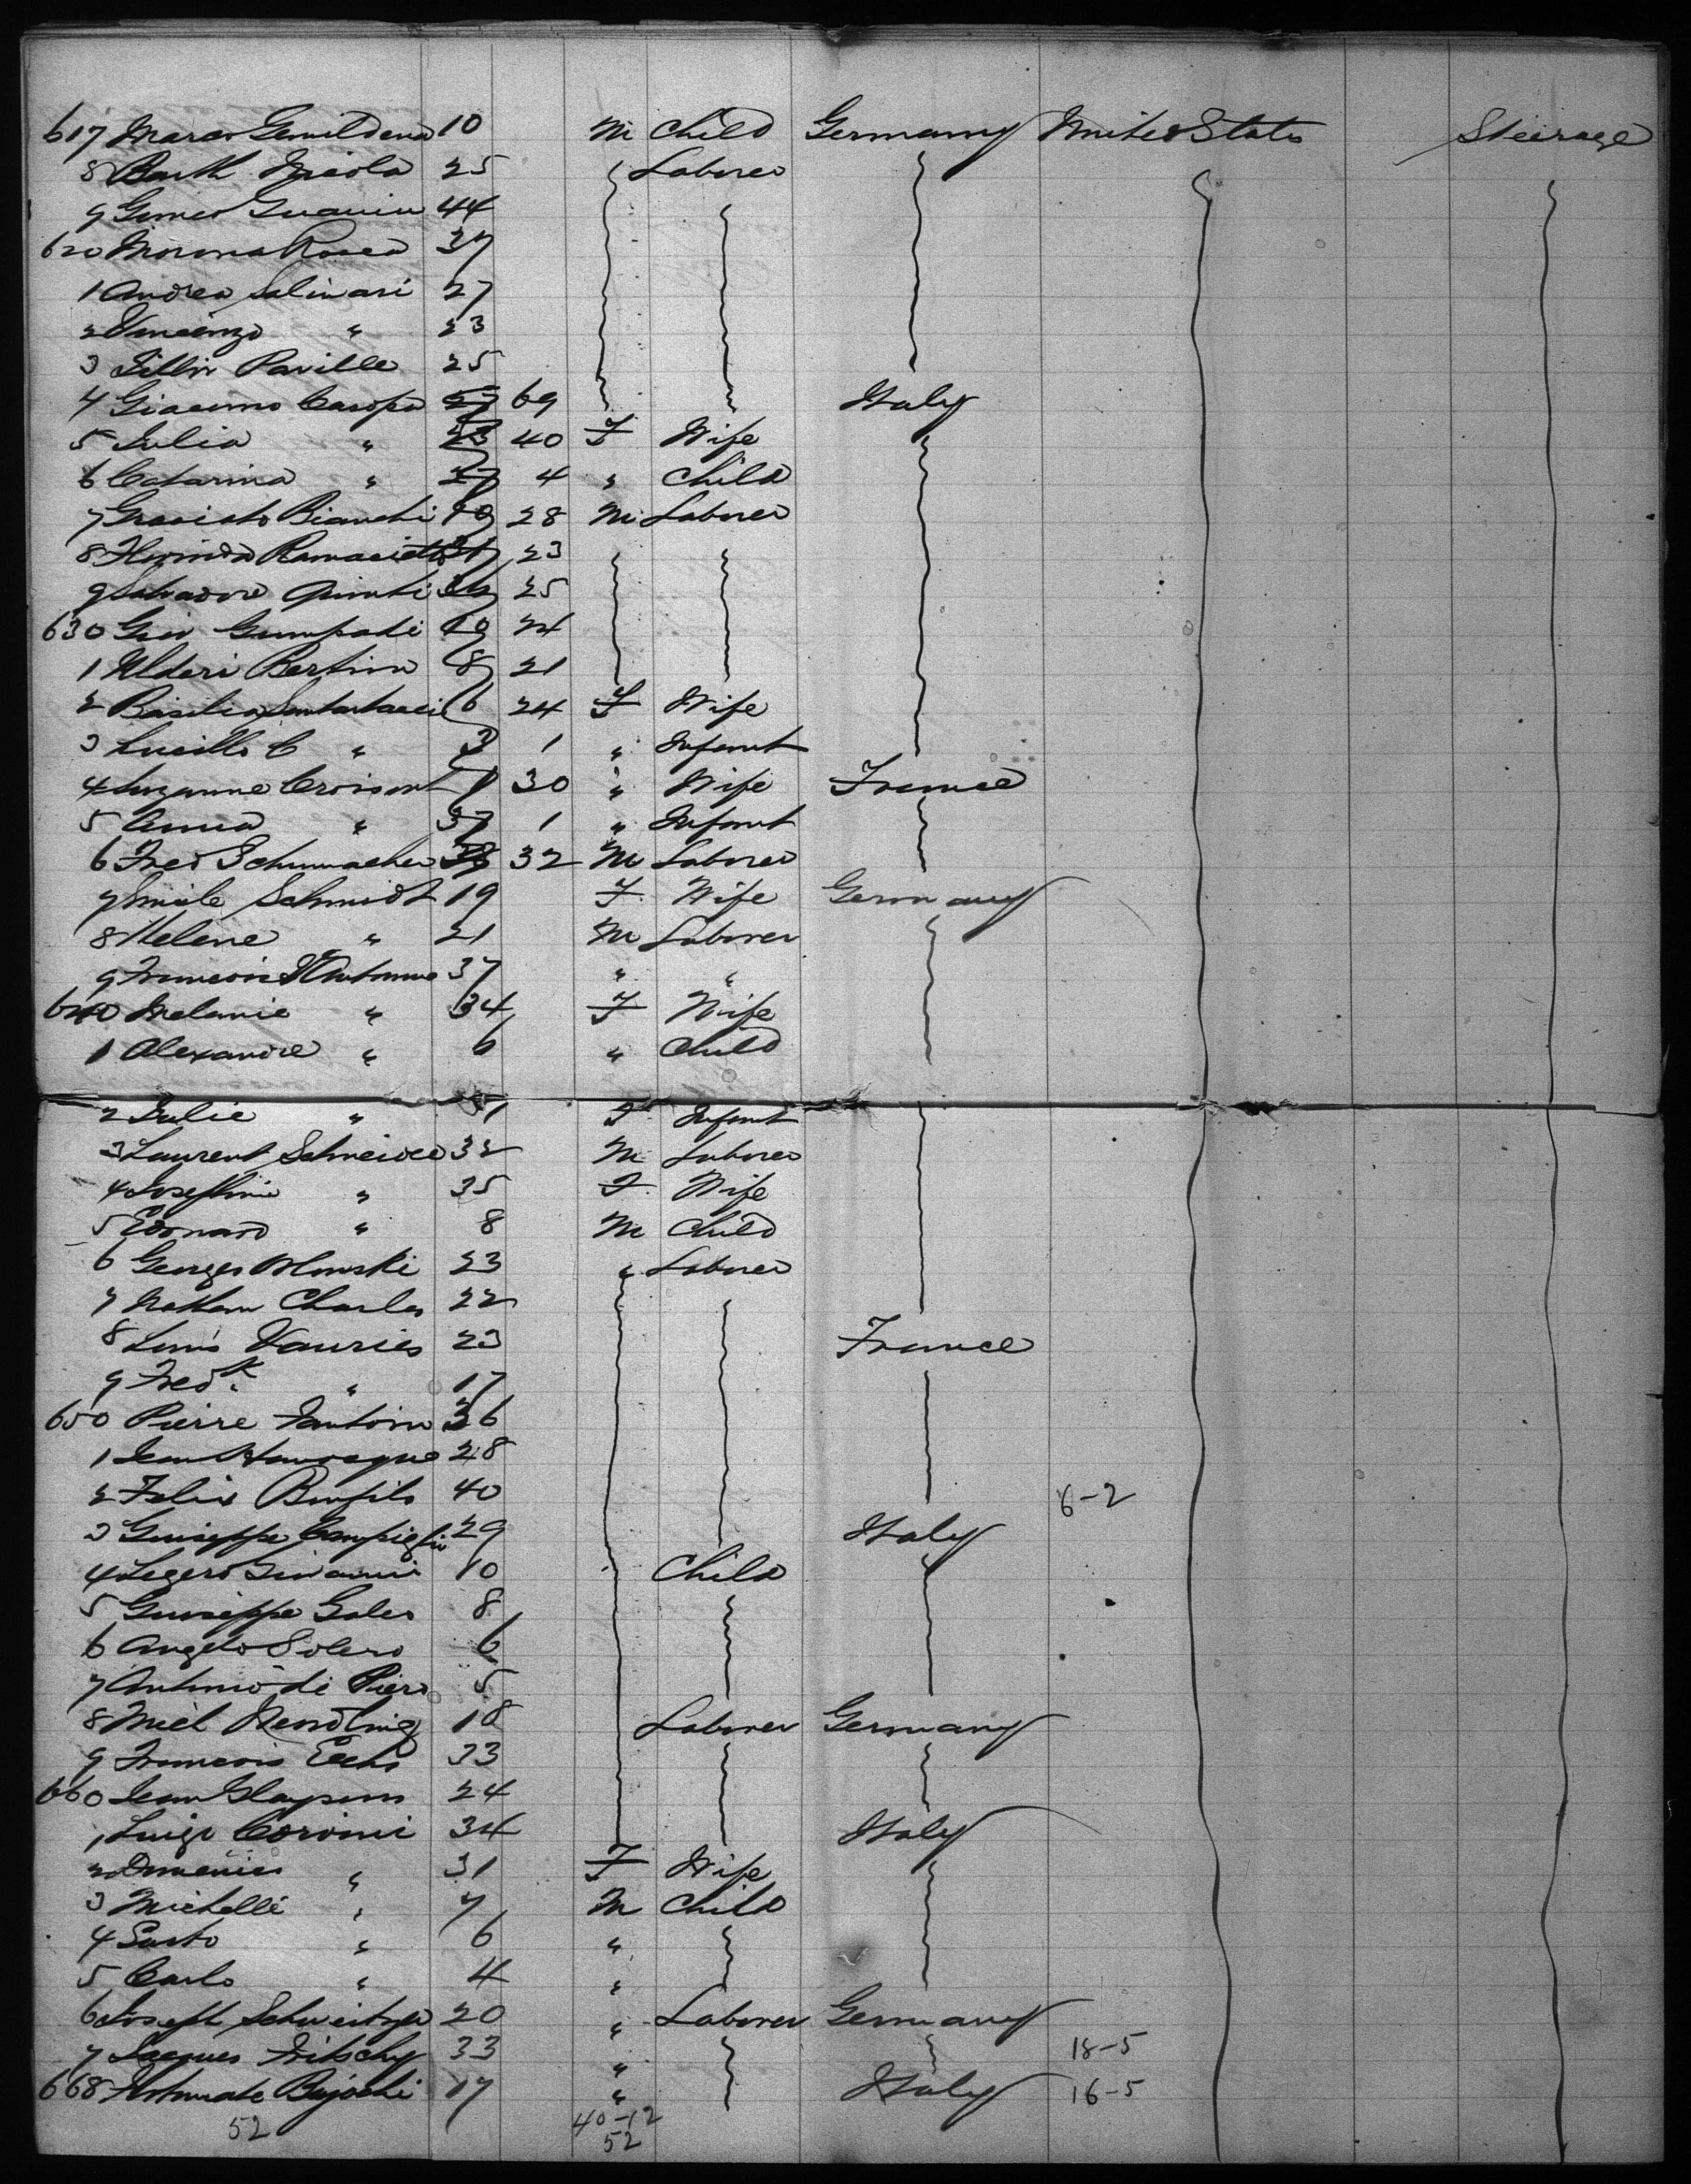 617 Marco Genildena 10 M Child Germany United States Steerage
8 Barth Nicola 25 Laborer
9 44
620 Rosea 37
1 Andrea Salinari 27
2 Vincenzo " 23
3 Paville 25
4 Giacomo Casopa 69 Italy
5 Julia " 40 F Wife
6 Catarina " 27 4 " Child
7 Graciato Bianchi 19 28 M Laborer
8 23
9 Salvadore 25
630 Gio 19 24
1 Uldori Bertina 8 21
2 Basilia 6 24 F Wife
3 Lucillo C " 3 1 " Infant
4 Suzanne Croisant 30 " Wife France
5 Anna " 37 1 " Infant
6 Fred Schumacher 32 M Laborer
7 Emile Schmidt 19 F Wife Germany
8 Helene " 21 M Laborer
9 Francois 37 " "
640 Melanie " 34 F Wife
1 Alexandre " 6 " Child
2 Julie " 1 F Infant
3 Laurent Schneider 32 M Laborer
4 Josephine " 35 F Wife
5 Edouard " 8 M Child
6 Georges 23 " Laborer
7 Nathan Charles 22
8 Louis Vauries 23 France
9 Fredk. " 17
650 Pierre Fantoin 36
1 Jean 28
2 Felix Bonfils 40 6-2
3 Guiseppe Campiglio 29 Italy
4 Legero 10 Child
5 Guiseppe Gales 8
6 Angelo Solero 6
7 Antonio di Piero 5
8 Miel Wendling 18 Laborer Germany
9 Francois 33
660 Jean 24
1 Luigi Coroni 34 Italy
2 Domenica " 31 F Wife
3 Michelli " 7 M Child
4 Santo " 6 "
5 Carlo " 4 "
6 Joseph Schweitzer 20 " Laborer Germany
7 Jacques Fritschy 33 " 18-5
668 Fortunato 17 " Italy 16-5
52 40-12
52